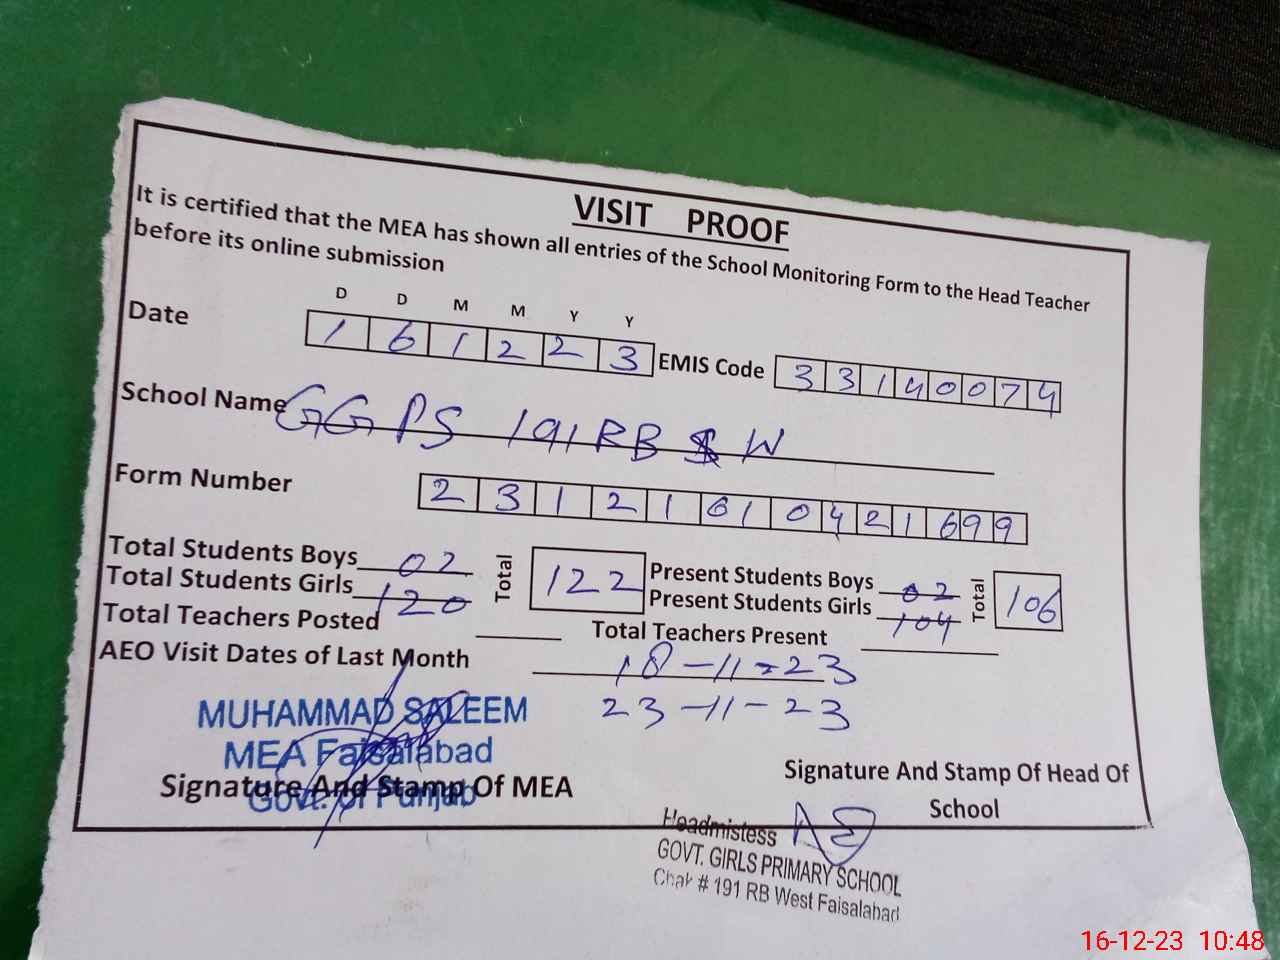 VISIT PROOF
It is certified that the MEA has shown all entries of the School Monitoring Form to the Head Teacher
before its online submission
D D M M Y Y
Date 1 6 1 2 2 3 EMIS Code 3 3 1 4 0 0 7 4
School Name GGPS 191 RB W
Form Number 2 3 1 2 1 6 1 0 4 2 1 6 9 9
Total Students Boys 02 Total 122 Present Students Boys 02 Total 106
Total Students Girls 120 Present Students Girls 104
Total Teachers Posted Total Teachers Present
AEO Visit Dates of Last Month 18-11-23
23-11-23
MUHAMMAD SALEEM
MEA Faisalabad
Govt. of Punjab
Signature And Stamp Of MEA
Signature And Stamp Of Head Of
School
Headmistess
GOVT. GIRLS PRIMARY SCHOOL
Chak # 191 RB West Faisalabad
16-12-23 10:48